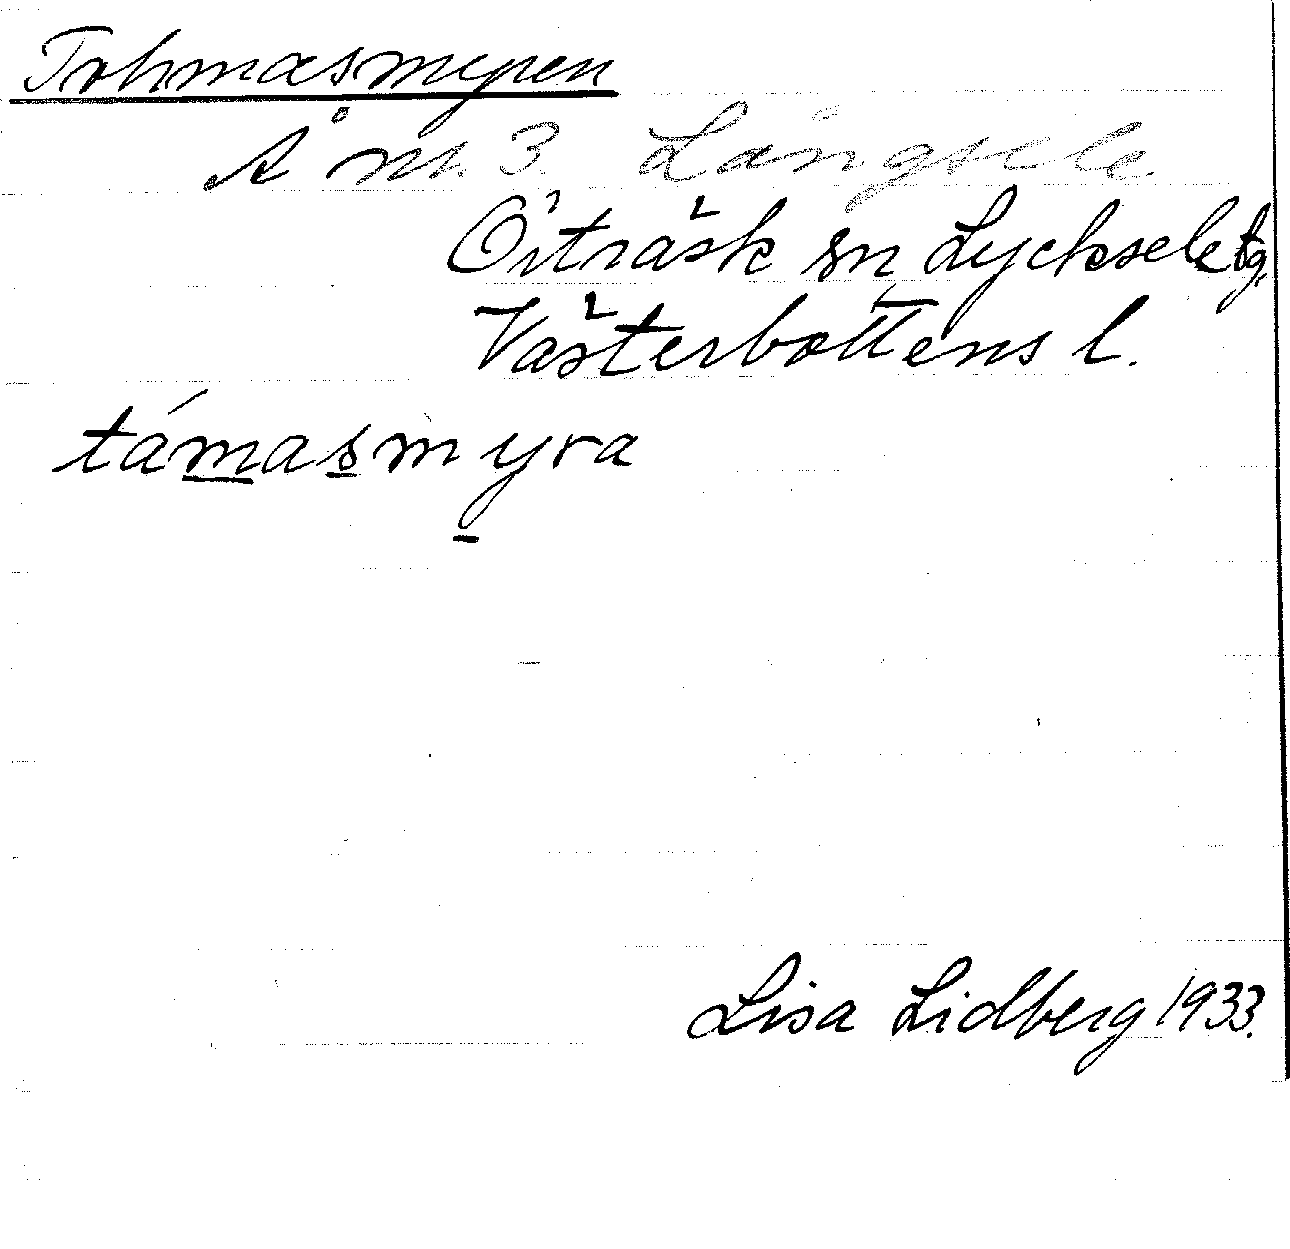 Tohmasmyren
Å nr. 3. Långsele
Örträsk sn Lycksele tg.
Västerbottens l.
támasmyra
Lisa Lidberg 1933.